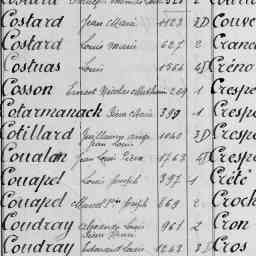 Costard Jean Marie 1123 3D Couve
Costard Louis marie 627 2
Costuas Louis 1564 Créno
Cosson Ernest Nicolas Mathurin 269 1 Cresp
Cotarmanack Jean Marie 399 1 Crespe
Cotillard Guillaume ange Jean Louis 1040 3D Crespe
Coualan Jean Louis Pierre 1763 Crespe
Couapel Louis Joseph 397 1 Crété
Couapel Marcel Joseph 669 2 Crock
Coudray Alexandre Louis Jean Henri 961 2 Cron
Coudray Edouard Louis 1243 3D Cros